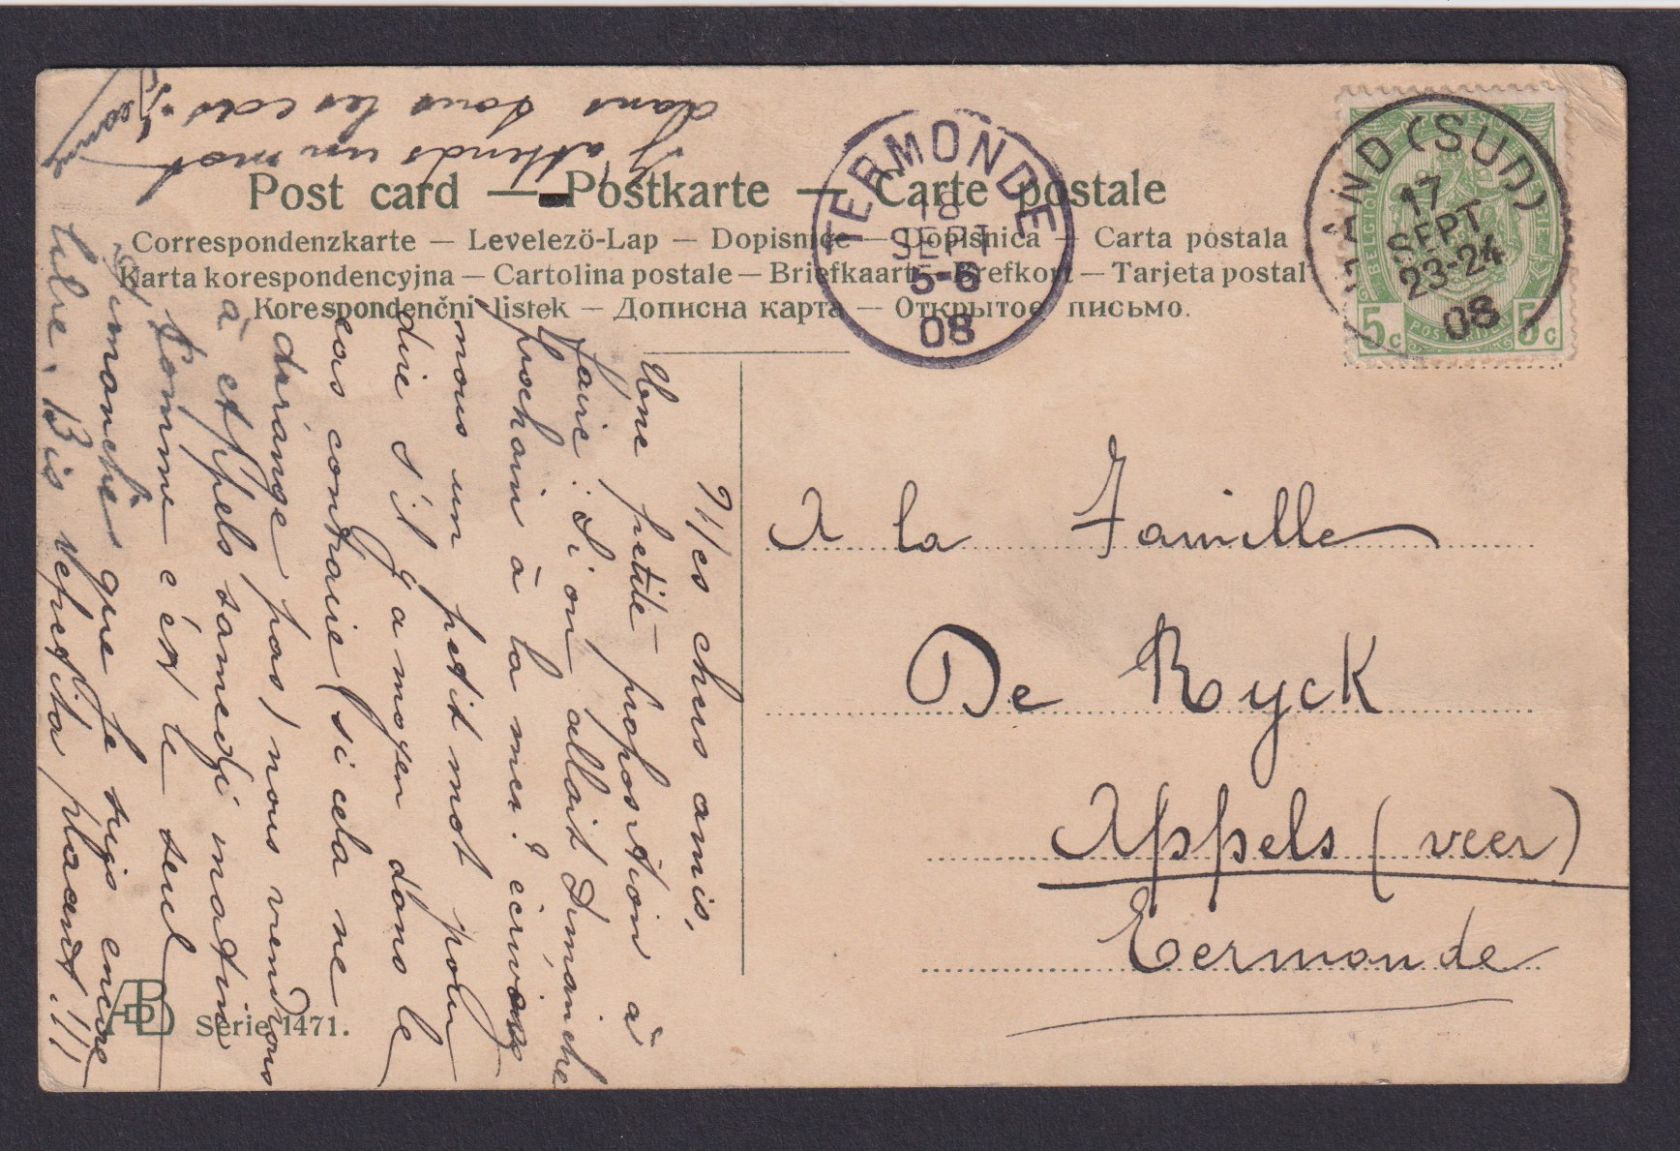 Post card — Postkarte — Carte postale
Correspondenzkarte — Levelezö-Lap — Dopisnice — Dopisnica — Carta postala
Karta korespondencyjna — Cartolina postale — Briefkaart — Brefkort — Tarjeta postal
Korespondenční listek — Дописна карта — Открытое письмо.
TERMONDE
18
SEPT
5-6
08
GAND (SUD)
17
SEPT
23-24
08
BELGIQUE
5c POSTERIJEN 5c
A la Famille
De Ryck
Appels (veer)
Termonde
Mes chers amis,
Une petite proposition à
faire: Si on allait Dimanche
prochain à la mer? écrivez
nous un petit mot pour
dire s'il y a moyen dans le
cas contraire (si cela ne
dérange pas) nous viendrons
à Appels samedi matin
Comme c'est le seul
dimanche que je suis encore
libre. Bis repetita placent!!!
J'attends un mot
dans tous les cas
Serie 1471.